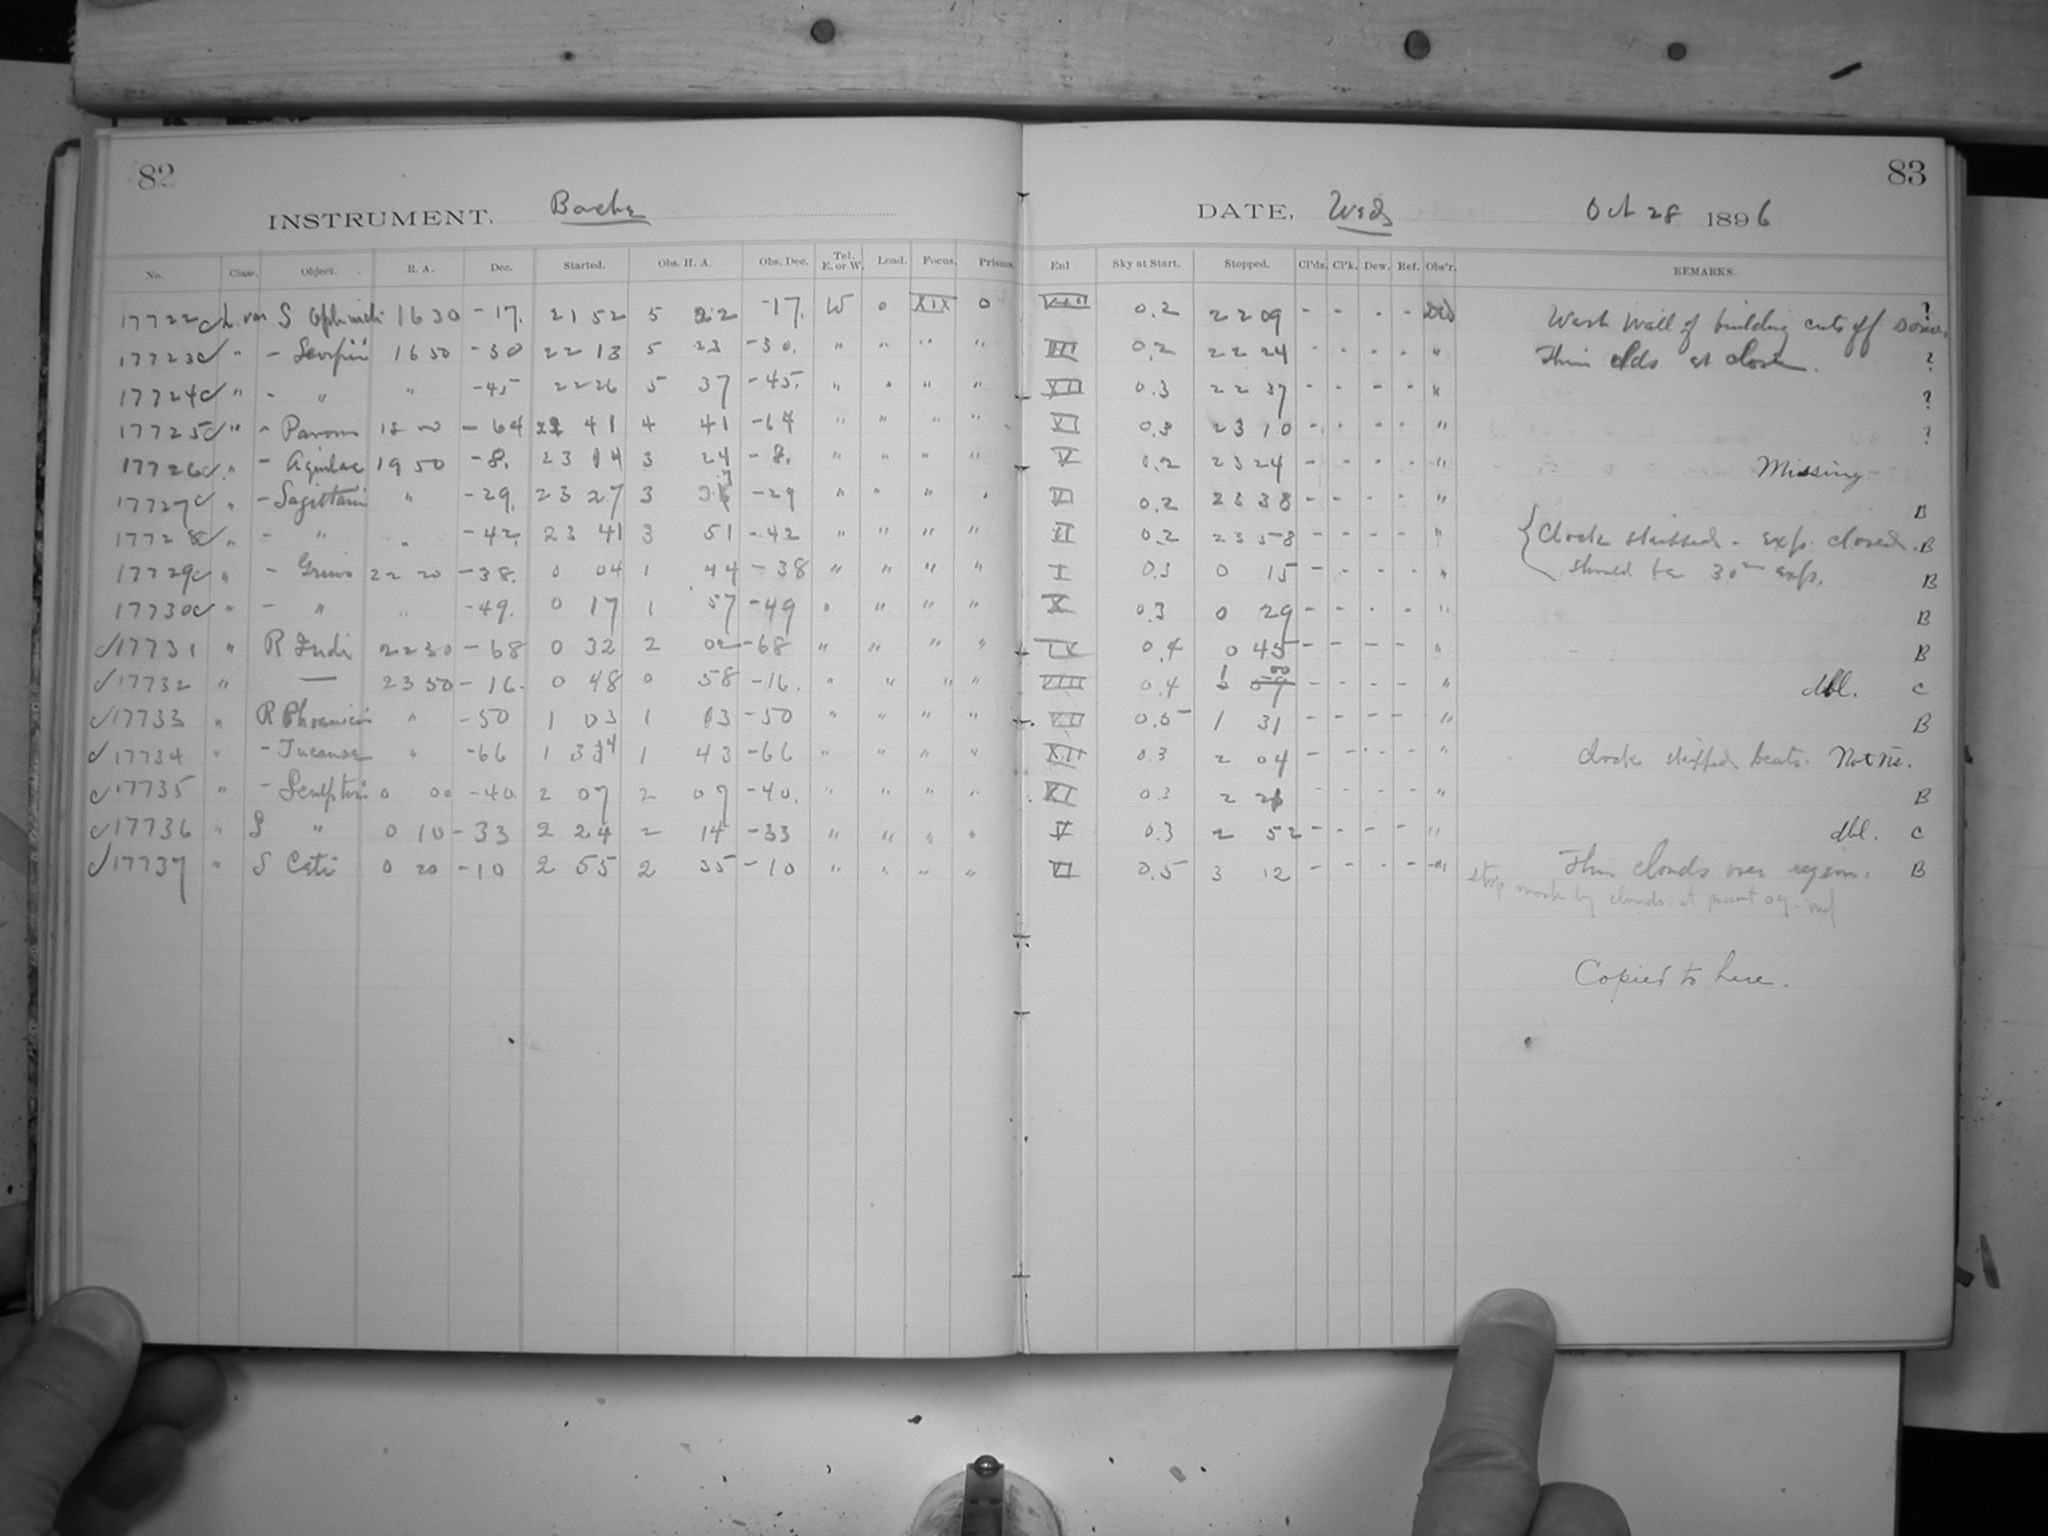 82
83
INSTRUMENT, Bache
DATE, Weds Oct 28 1896
No. Class. Object. R. A. Dec. Started. Obs. H. A. Obs. Dec. Tel. E. or W. Load. Focus. Prisms. Enl Sky at Start. Stopped. Cl'ds. Cl'k. Dew. Ref. Obs'r. REMARKS.
17722 L var S Ophiuchi 16 30 -17. 21 52 5 22 -17. W 0 XIX 0 VIII 0.2 22 09 - - - - West wall of building cuts off some. ?
17723 " - Scorpii 16 50 -30 22 13 5 23 -30. " " " " 0.2 22 24 - - - - " Thin clds at close. ?
17724 " - " " -45 22 26 5 37 -45. " " " " XII 0.3 22 37 - - - - " ?
17725 " - Pavonis 18 00 -64 22 41 4 41 -64 " " " " XI 0.3 23 10 - - - - " ?
17726 " - Aquilae 19 50 -8. 23 14 3 24 -8. " " " " V 0.2 23 24 - - - - " Missing
17727 " - Sagittarii " -29. 23 27 3 37 -29 " " " " VI 0.2 23 38 - - - - " B
17728 " - " " -42. 23 41 3 51 -42 " " " " 0.2 23 58 - - - - " { Clock skipped - exp. closed. B
17729 " - Gruis 22 20 -38. 0 04 1 44 -38 " " " " I 0.3 0 15 - - - - " should be 30m exp. B
17730 " - " " -49. 0 17 1 57 -49 " " " " X 0.3 0 29 - - - - " B
17731 " R Indi 22 30 -68 0 32 2 02 -68 " " " " IX 0.4 0 45 - - - - " B
17732 " — 23 50 -16. 0 48 0 58 -16. " " " " VIII 0.4 1 00 - - - - " dbl. C
17733 " R Phoenicis " -50 1 03 1 13 -50 " " " " 0.5 1 31 - - - - " B
17734 " - Tucanae " -66 1 34 1 43 -66 " " " " XII 0.3 2 04 - - - - " Clock skipped beats. Not
17735 " - Sculptoris 0 00 -40. 2 07 2 07 -40. " " " " XI 0.3 2 21 - - - - " B
17736 " S " 0 10 -33 2 24 2 14 -33 " " " " V 0.3 2 52 - - - - " dbl. C
17737 " S Ceti 0 20 -10 2 55 2 35 -10 " " " " VI 0.5 3 12 - - - - " Thin clouds over region. B
stop work by clouds at present
Copied to here.